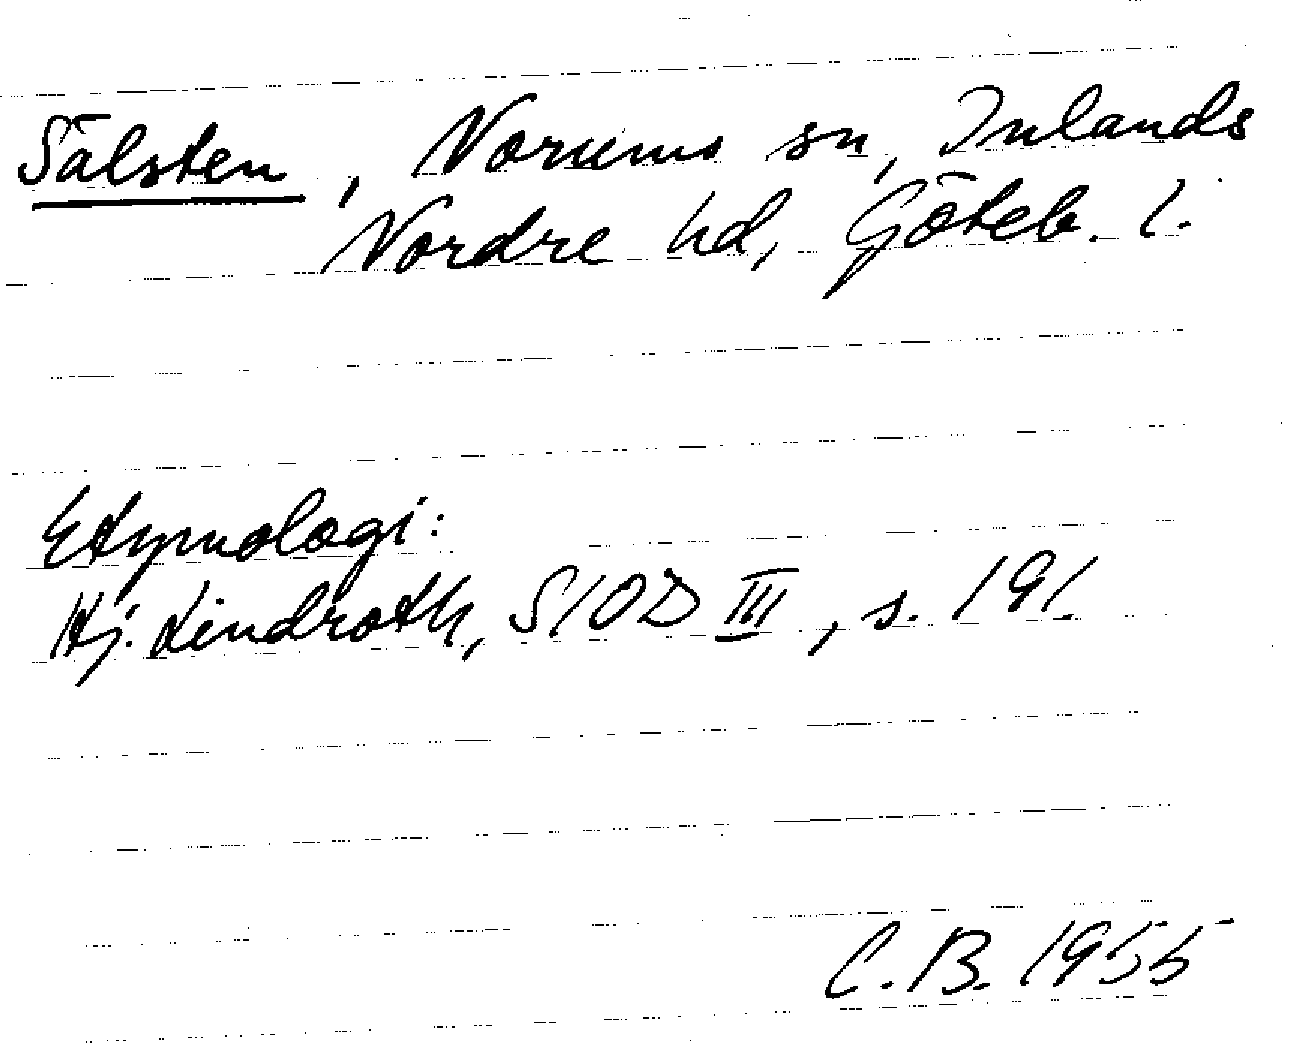 Sälsten, Norums sn, Inlands
Nordre hd, Göteb. l.
Etymologi:
Hj. Lindroth, SIOD III, s. 191.
C.B. 1955